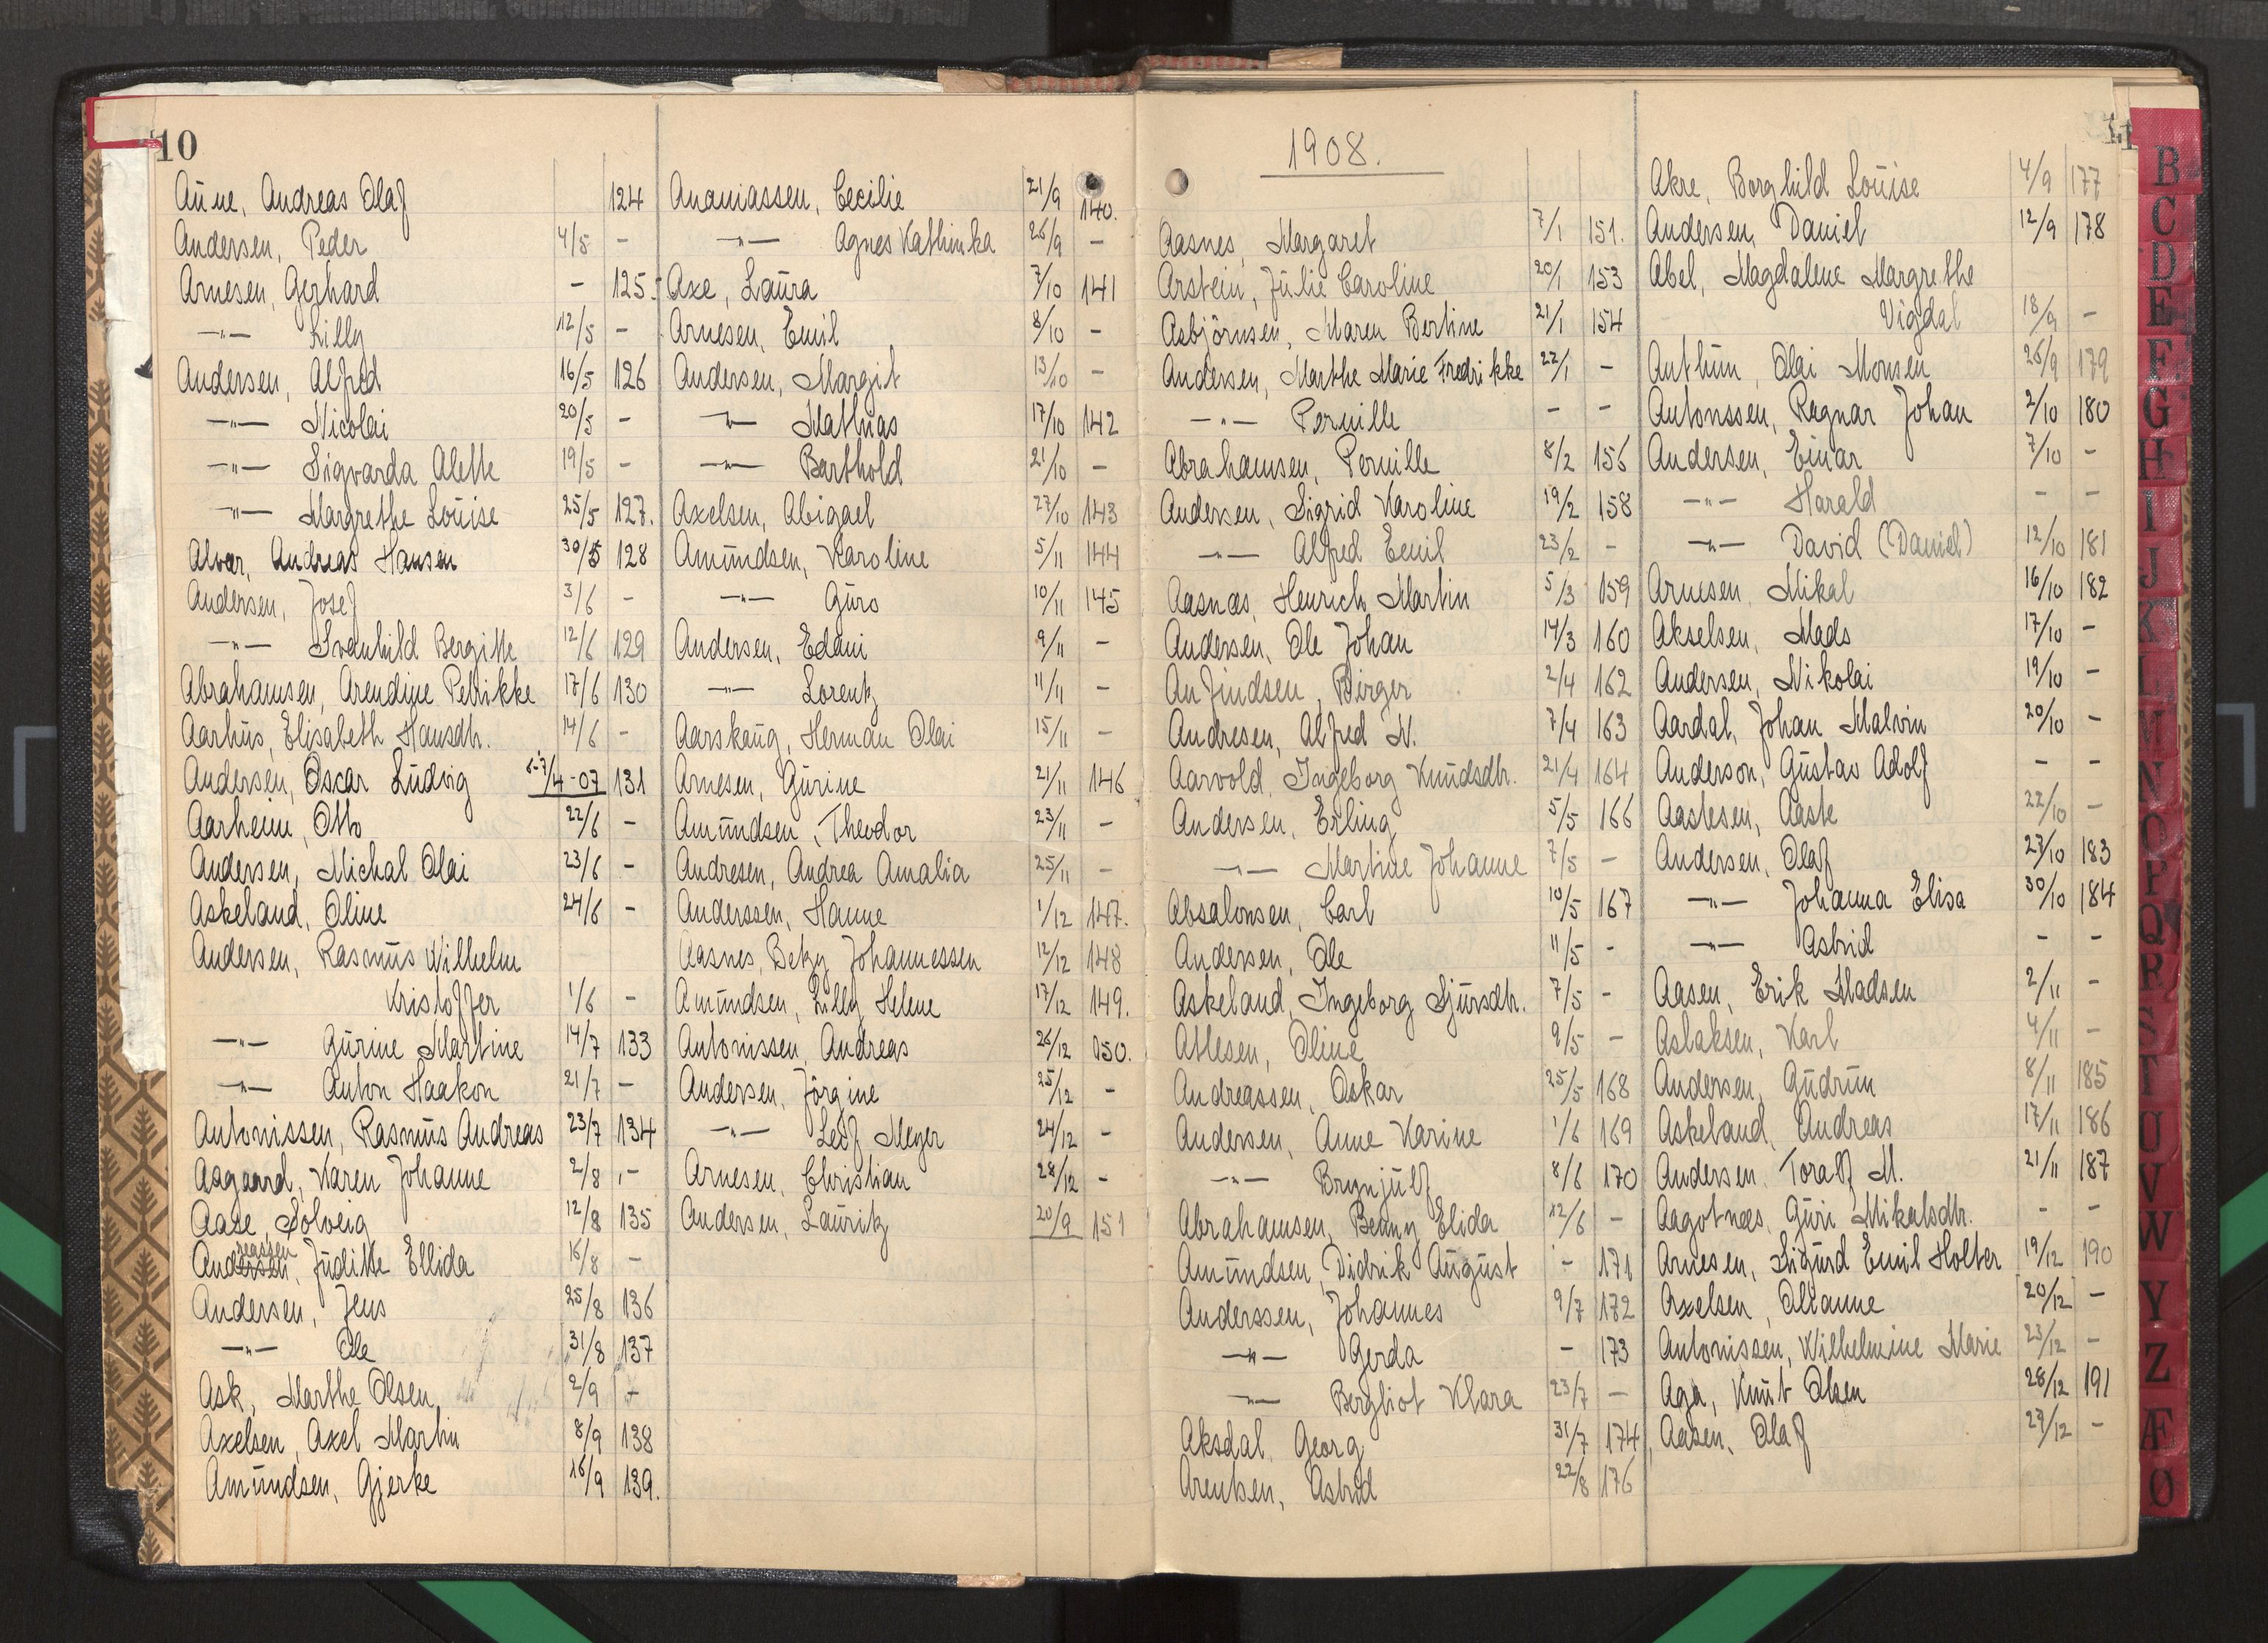 10
Aune, Andreas Olaf 124
Andersen, Peder 4/5 -
Arnesen, Gerhard - 125
-"- Lilly 12/5 -
Andersen, Alfred 16/5 126
-"- Nicolai 20/5 -
-"- Sigvarda Alette 19/5 -
-"- Margrethe Louise 25/5 127.
Alvær, Andreas Hansen 30/5 128
Andersen, Josef 3/6 -
-"- Svanhild Bergitte 12/6 129
Abrahamsen, Arendine Petrikke 17/6 130
Aarhus, Elisabeth Hansdtr. 14/6 -
Andersen, Oscar Ludvig 6-7/4-07 131
Aarheim, Otto 22/6 -
Andersen, Michal Olai 23/6 -
Askeland, Oline 24/6 -
Andersen, Rasmus Wilhelm
Kristoffer 1/6 -
-"- Gurine Martine 14/7 133
-"- Anton Haakon 21/7 -
Antonissen, Rasmus Andreas 23/7 134
Aagaard, Karen Johanne 2/8 -
Aase, Solveig 12/8 135
reassen
Andersen, Judithe Ellida 16/8 -
Andersen, Jens 25/8 136
-"- Ole 31/8 137
Ask, Marthe Olsen 2/9 -
Axelsen, Axel Martin 8/9 138
Amundsen, Gjerke 16/9 139.
Ananiassen, Cecilie 21/9 140.
-"- Agnes Kathinka 26/9 -
Axe, Laura 7/10 141
Arnesen, Emil 8/10 -
Andersen, Margit 13/10 -
-"- Mathias 17/10 142
-"- Barthold 21/10 -
Axelsen, Abigael 27/10 143
Amundsen, Karoline 5/11 144
-"- Guro 10/11 145
Andersen, Edani 9/11 -
-"- Lorentz 11/11 -
Aarskaug, Herman Olai 15/11 -
Arnesen, Gurine 21/11 146
Amundsen, Theodor 23/11 -
Andresen, Andrea Amalia 25/11 -
Anderssen, Hanne 1/12 147.
Aasnes, Betzy Johannessen 12/12 148
Amundsen, Lilly Helene 17/12 149.
Antonissen, Andreas 26/12 150.
Andersen, Jörgine 25/12 -
-"- Leif Meyer 24/12 -
Arnesen, Christian 28/12 -
Andersen, Lauritz 20/9 151
1908.
Aasnes, Margaret 7/1 151.
Arstein, Julie Caroline 20/1 153
Asbjörnsen, Maren Bertine 21/1 154
Andersen, Marthe Marie Fredrikke 22/1 -
-"- Pernille - -
Abrahamsen, Pernille 8/2 156
Andersen, Sigrid Karoline 19/2 158
-"- Alfred Emil 23/2 -
Aasnæs, Henrich Martin 5/3 159
Andersen, Ole Johan 14/3 160
Anfindsen, Birger 2/4 162
Andresen, Alfred N. 7/4 163
Aarvold, Ingeborg Knudsdtr. 21/4 164
Andersen, Erling 5/5 166
-"- Martine Johanne 7/5 -
Absalonsen, Carl 10/5 167
Andersen, Ole 11/5 -
Askeland, Ingeborg Sjursdtr. 7/5 -
Atlesen, Oline 9/5 -
Andreassen, Oskar 25/5 168
Andersen, Anne Karine 1/6 169
-"- Brynjulf 8/6 170
Abrahamsen, Benny Elida 12/6 -
Amundsen, Didrik August - 171
Anderssen, Johannes 9/7 172
-"- Gerda - 173
-"- Bergliot Klara 23/7 -
Aksdal, Georg 31/7 174
Arentsen, Astrid 22/8 176
11
Akre, Borghild Louise 4/9 177
Andersen, Daniel 12/9 178
Abel, Magdalene Margrethe
Vigdal 18/9 -
Anthun, Olai Monsen 26/9 179
Antonssen, Ragnar Johan 2/10 180
Andersen, Einar 7/10 -
-"- Harald - -
-"- David (Daniel) 12/10 181
Arnesen, Mikal 16/10 182
Akselsen, Mads 17/10 -
Andersen, Nikolai 19/10 -
Aardal, Johan Malvin 20/10 -
Anderson, Gustav Adolf - -
Aastesen, Aaste 22/10 -
Andersen, Olaf 27/10 183
-"- Johanna Elisa 30/10 184
-"- Astrid - -
Aasen, Erik Madsen 2/11 -
Aslaksen, Karl 4/11 -
Andersen, Gudrun 8/11 185
Askeland, Andreas 17/11 186
Andersen, Toralf M. 21/11 187
Aagotnæs, Guri Mikalsdtr. - -
Arnesen, Sigurd Emil Holter 19/12 190
Axelsen, Olianne 20/12 -
Antonissen, Wilhelmine Marie 23/12 -
Aga, Knut Olsen 28/12 191
Aasen, Olaf 29/12 -
B
C
D
E
F
G
H
I
J
K
L
M
N
O
P
Q
R
S
T
U
V
W
Y
Z
Æ
Ø